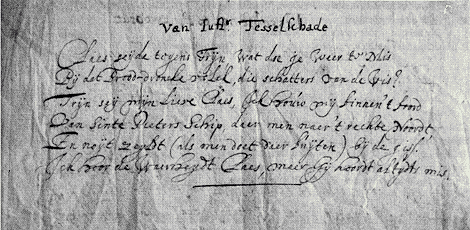 Van Juffr. Tesselschade
Claes seyde tegens Trijn Wat doe je Weer te Mis
By dat Brood-dronke volck, die schetters van de Vis?
Trijn sey mijn lieve Claes, houw my binnen't boord
Van Sinte Pieters Schip daer men naer't rechte Noordt
En noyt zeyldt (als men doet daer buyten) by de gis.
Ick hoor de Waerheydt Claes, maer Ghy hoordt altydts mis.